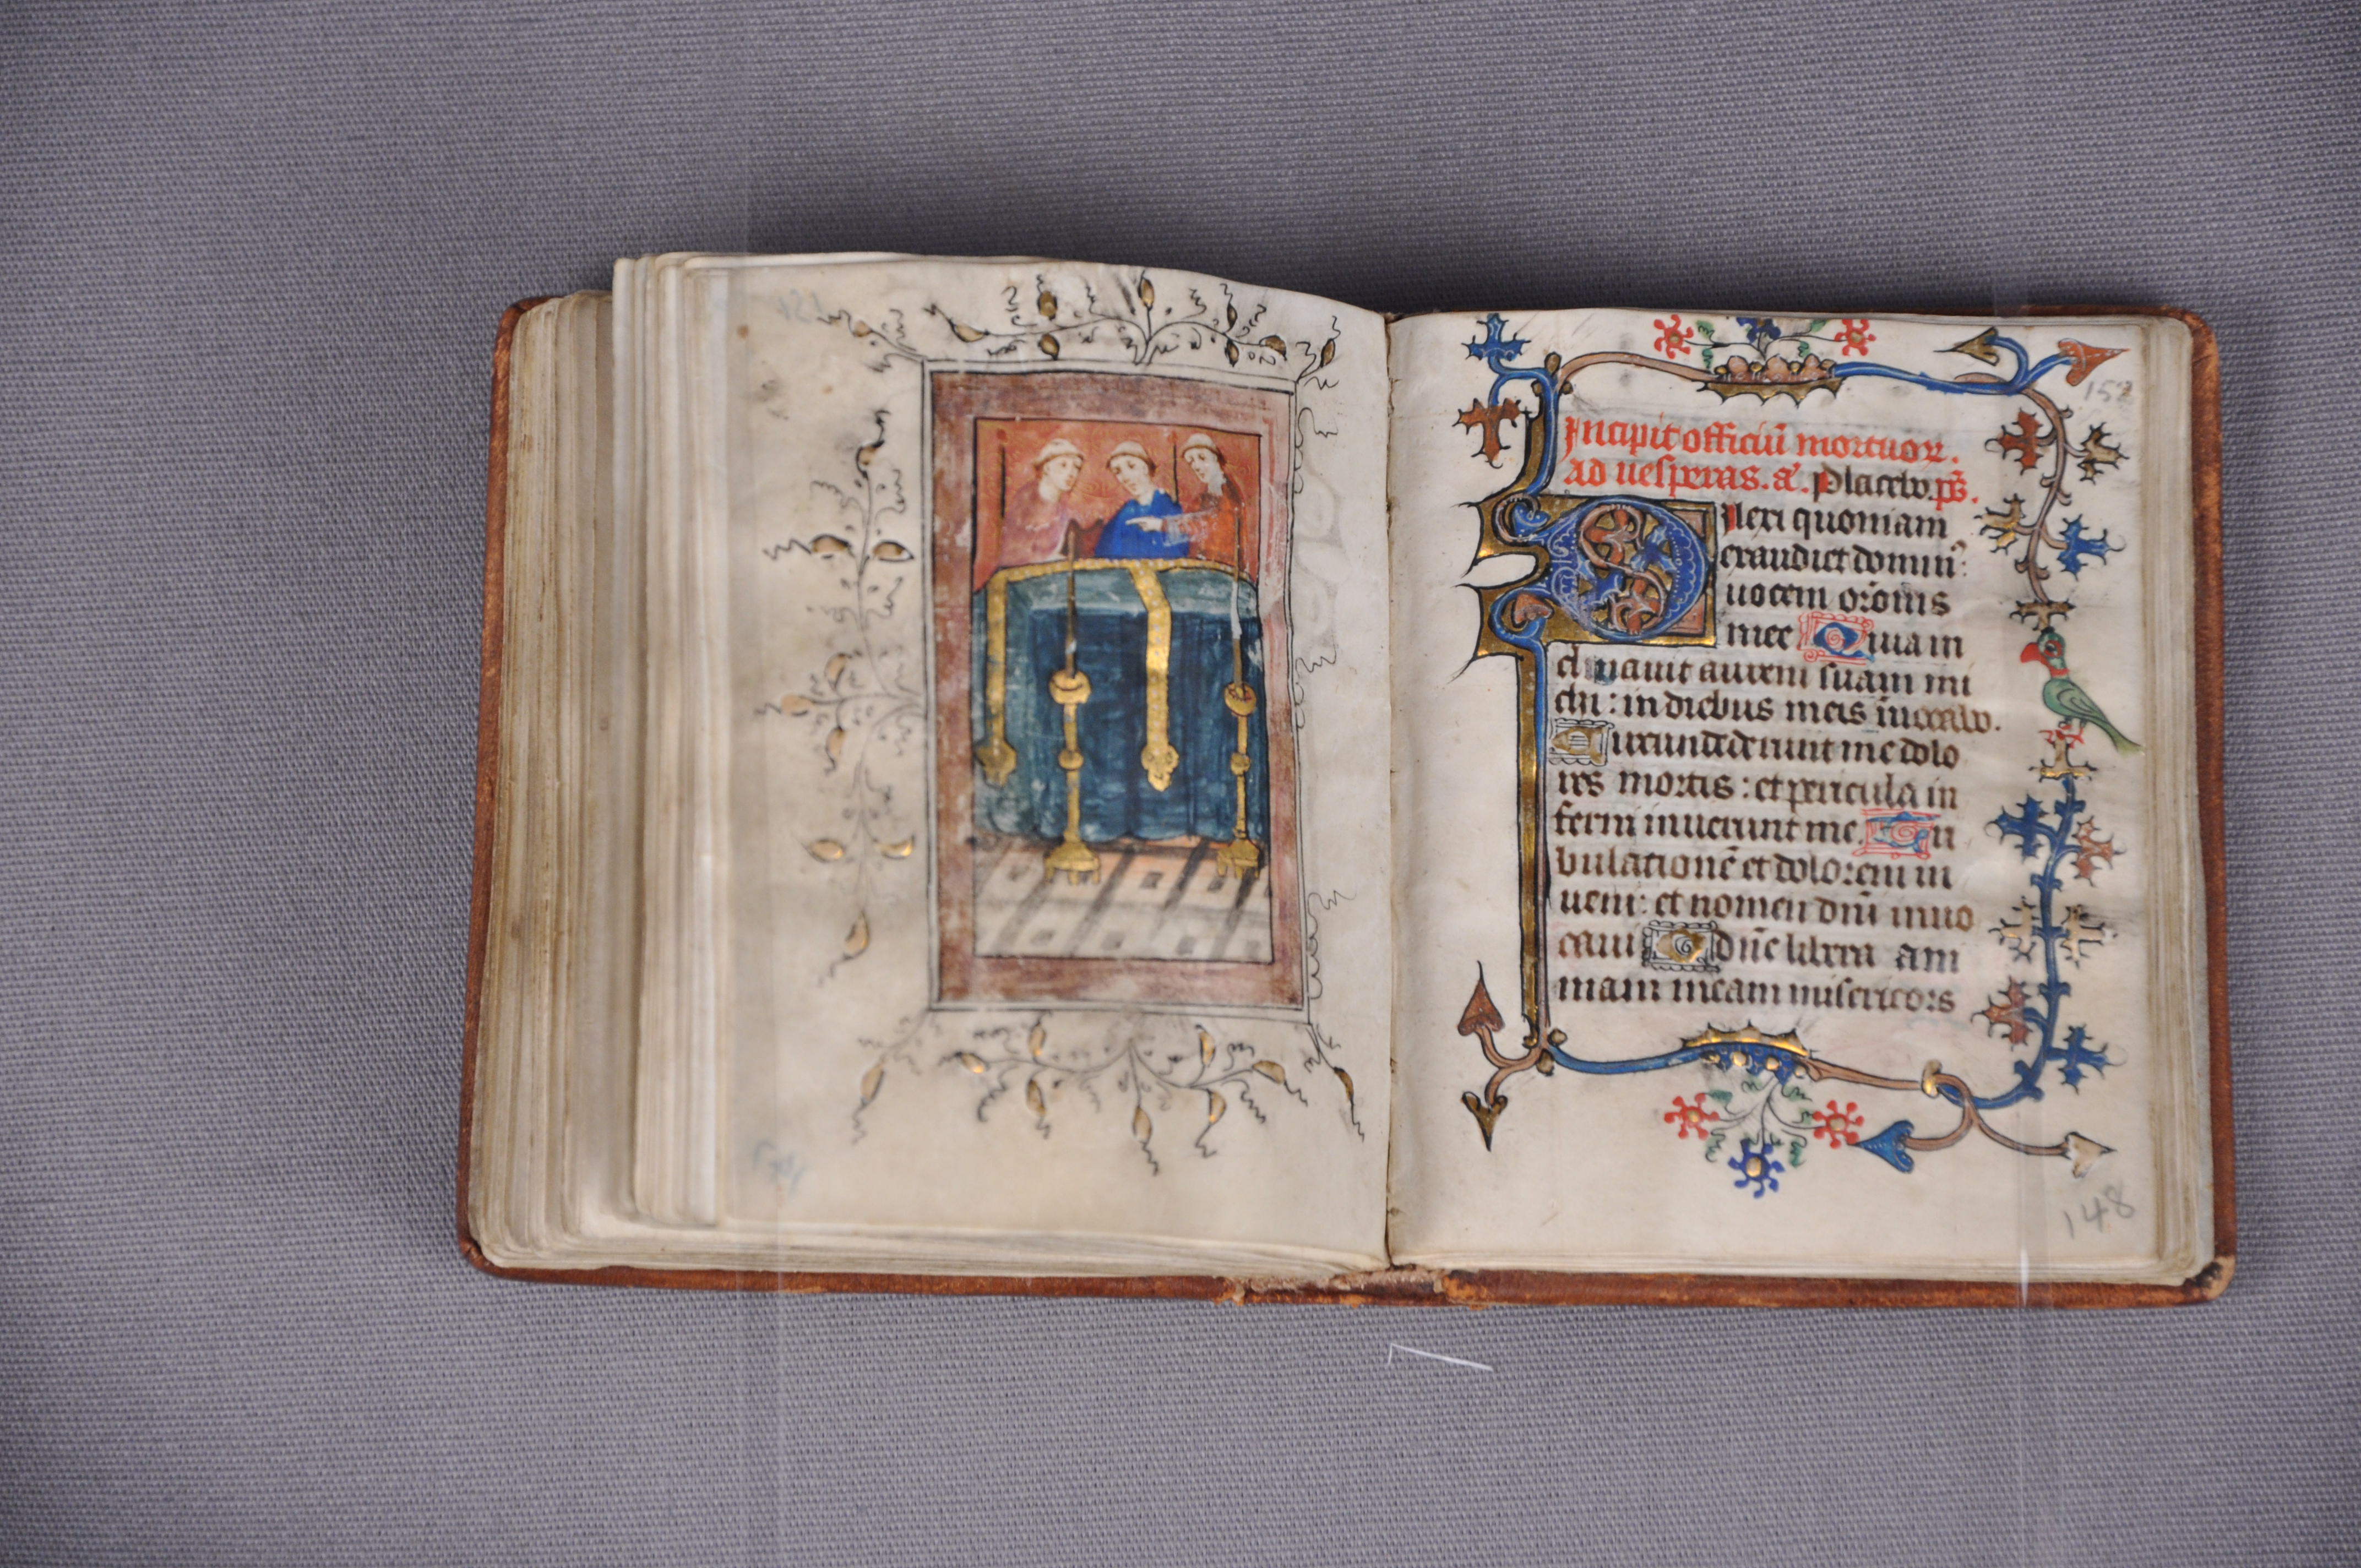 152
Incipit officiū mortuoꝝ.
Ad uesperas. añ. Placebo. ps̄.
Dilexi quoniam
exaudiet domin᷒:
uocem orōnis
mee Quia in
clinauit aurem suam mi
chi: in diebus meis īuocabo.
Circundederunt me dolo
res mortis: et pericula in
ferni inuenerunt me. Tri
bulationē et dolorem in
ueni: et nomen dn̄i inuo
caui O dn̄e libera ani
mam meam misericors
148